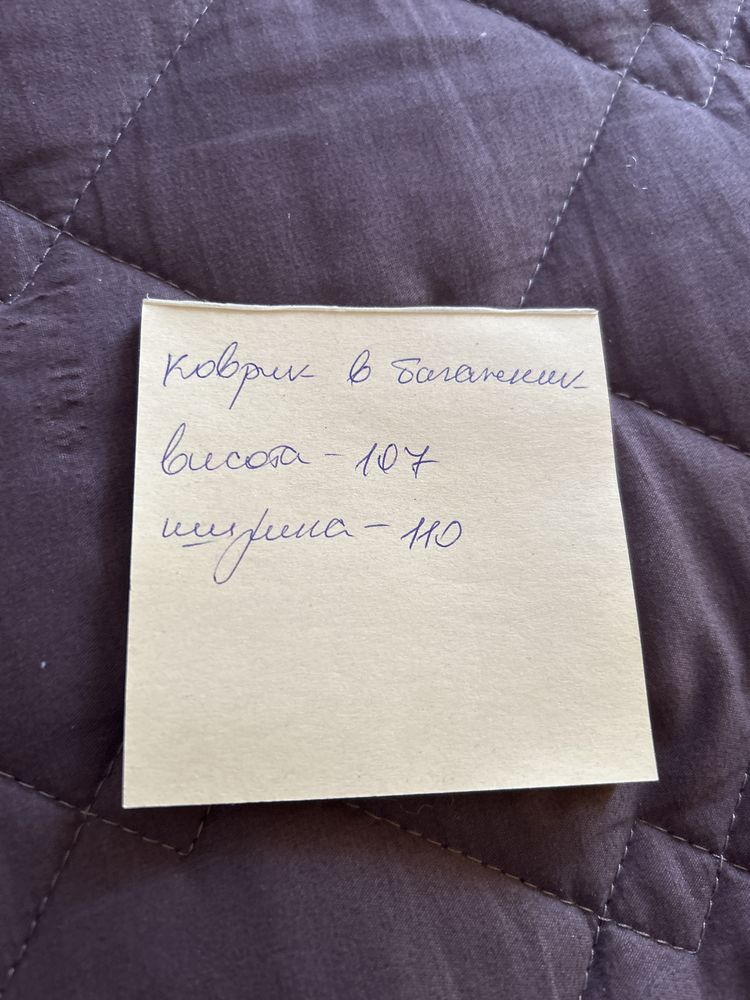 коврик в багажник
висота - 107
ширина - 110